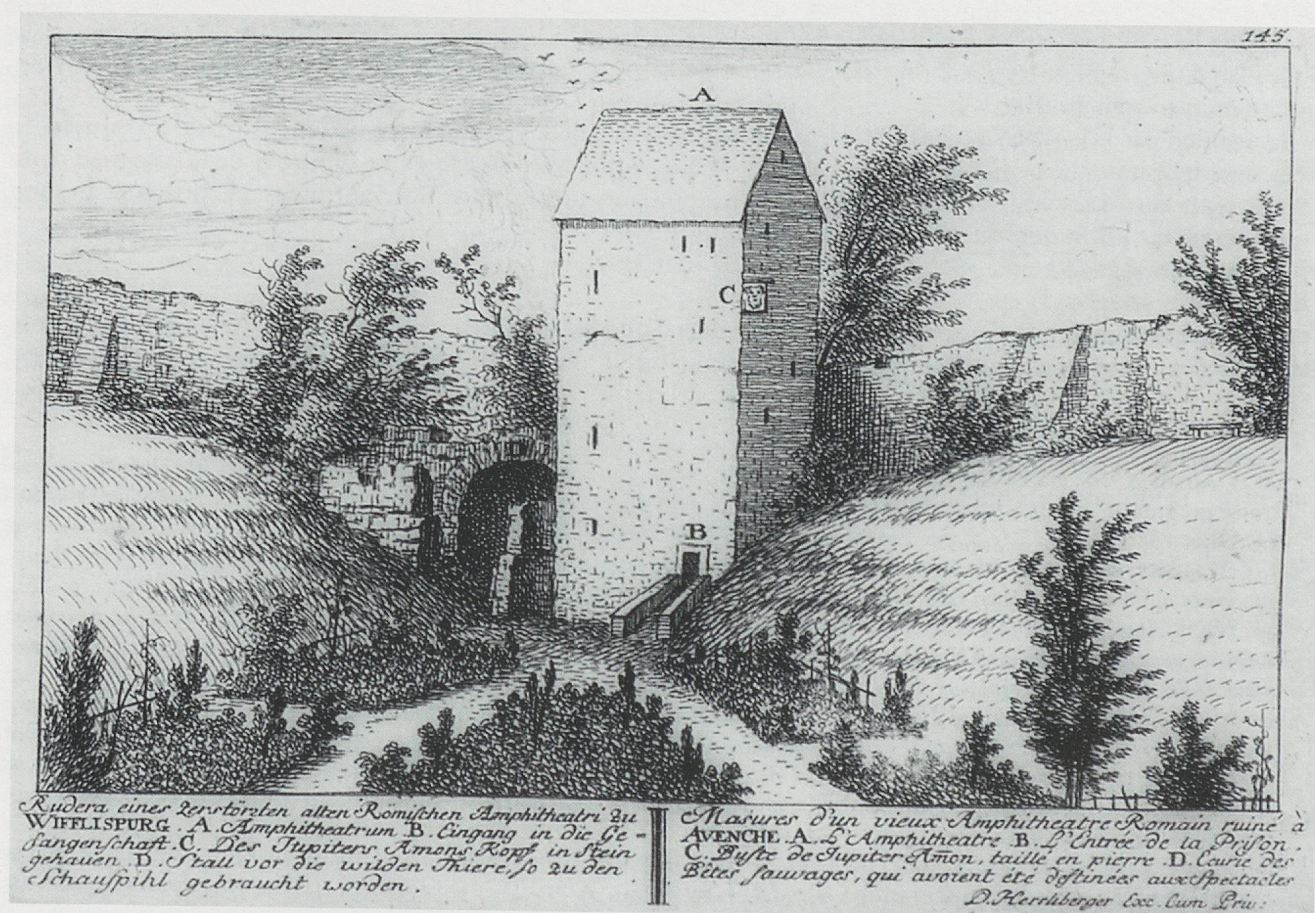 145.
A
C
B
Rudera eines zerstörten alten Römischen Amphitheatri zu
WIFFLISPURG. A. Amphitheatrum B. Eingang in die Ge-
fangenschaft. C. Des Jupiters Amons Kopf in Stein
gehauen. D. Stall vor die wilden Thiere, so zu den
Schauspihl gebraucht worden.
Masures d'un vieux Amphitheatre Romain ruiné à
AVENCHE. A. L'Amphitheatre B. L'Entrée de la Prison.
C. Buste de Jupiter Amon, taillé en pierre. D. Ecurie des
Bêtes sauvages, qui avoient été destinées aux Spectacles
D. Herrliberger Exc. Cum Priv: